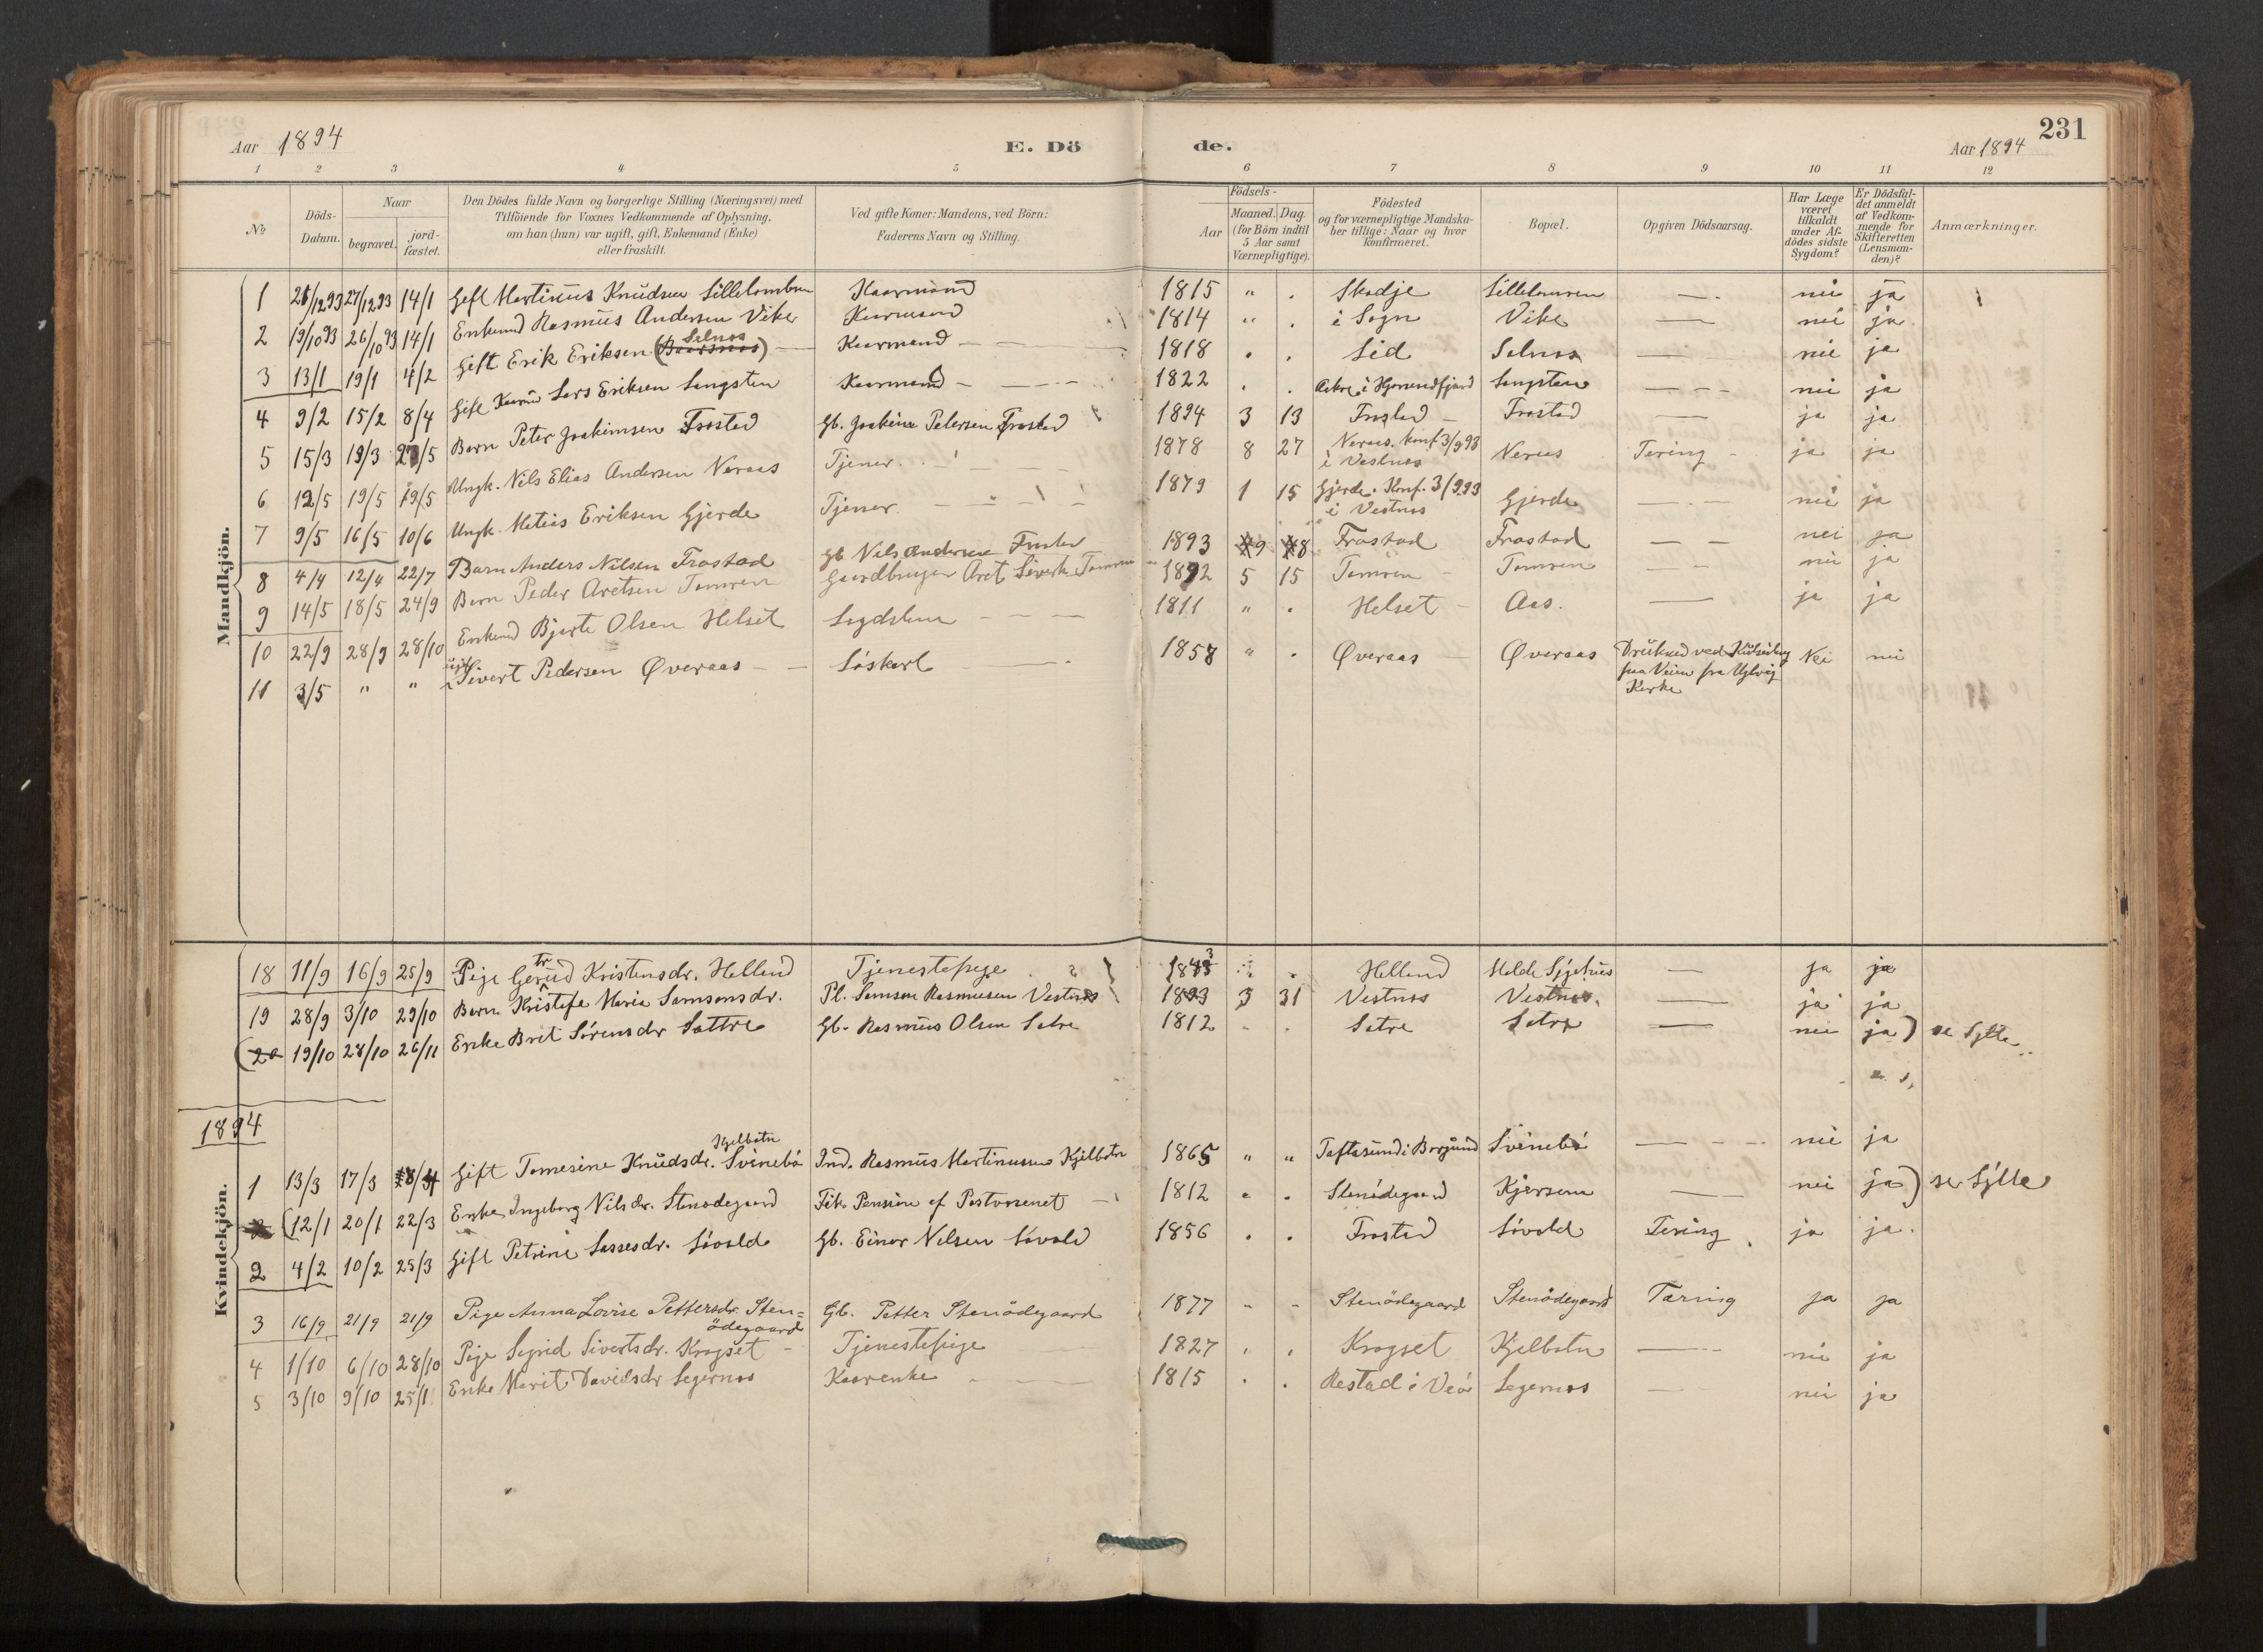 231
Aar 1894
E. Dö
de.
Aar 1894
1 2 3 4 5 6 7 8 9 10 11 12
№
Döds-Datum.
Naar
begravet.
jord-fæstet.
Den Dödes fulde Navn og borgerlige Stilling (Næringsvei) med
Tilföiende for Voxnes Vedkommende af Oplysning,
om han (hun) var ugift, gift, Enkemand (Enke)
eller fraskilt.
Ved gifte Koner: Mandens, ved Börn:
Faderens Navn og Stilling.
Födsels-
Aar
Maaned. Dag.
(for Börn indtil
5 Aar samt
Værnepligtige).
Födested
og for værnepligtige Mandska-
ber tillige: Naar og hvor
konfirmeret.
Bopæl.
Opgiven Dödsaarsag.
Har Læge
været
tilkaldt
under Af-
dödes sidste
Sygdom?
Er Dödsfal-
det anmeldt
af Vedkom-
mende for
Skifteretten
(Lensman-
den)?
Anmærkninger.
Mandkjön.
1 21/12 93 27/12 93 14/1 Gift Martinus Knudsen Lilletomren Kaarmand 1815 " . Skodje Lilletomren — nei ja
2 19/10 93 26/10 93 14/1 Enkemd Rasmus Andersen Vike Kaarmand 1814 " . i Sogn Vike — nei ja
3 13/1 19/1 4/2 Gift Erik Eriksen Selnos Kaarmand 1818 . . Lid Selnos — nei ja
4 9/2 15/2 8/4 Gift Lars Eriksen Langsten Kaarmand 1822 . . Aakre i Hjørendfjord Langsten — nei ja
5 15/3 19/3 23/5 Barn Peter Joakimsen Frostad Gb. Joakim Petersen Frostad 1894 3 13 Frostad Frostad — ja ja
6 12/5 19/5 19/5 Ungk. Nils Elias Andersen Neraas Tjener 1878 8 27 Neraas. konf 3/9 93
i Vestnes Neraas Tæring ja ja
7 9/5 16/5 10/6 Ungk. Matias Eriksen Gjerde Tjener. 1879 1 15 Gjerde. Konf. 3/9 93
i Vestnes Gjerde — nei ja
8 4/4 12/4 22/7 Barn Anders Nilsen Frostad Gb Nils Andersen Frostad 1893 9 8 Frostad Frostad — nei ja
9 14/5 18/5 24/9 Barn Peder Aretsen Tomren Gaardbruger Aret Siverts. Tomren 1892 5 15 Tomren Tomren — nei ja
10 22/9 28/9 28/10 Enkemd Bjerte Olsen Helset Legdslem 1811 " . Helset Aas. — ja ja
11 3/5 " " ugift Sivert Pedersen Øveraas Løskarl 1858 " . Øveraas Øveraas Druknet ved Kulseiling
paa Veien fra Uglvig
Kirke Nei nei
Kvindekjön.
18 11/9 16/9 25/9 Pige Gertrud Kristensdr. Helland Tjenestepige 1843 . . Helland Helde Sygehus — ja ja
19 28/9 3/10 29/10 Barn Kristofe Maria Samsonsdr. Pl. Samson Rasmusen Vestnes 1893 3 31 Vestnes Vestnes. — ja ja
(20 19/10 28/10 26/11 Enke Brit Sörensdr Sættre Gb. Rasmus Olsen Sætre 1812 . . Sætre Sætre — nei ja) se Sylte
1894
1 13/3 17/3 18/4 Gift Tomesine Knudsdr. Svinebö Kjelbotn Ind. Rasmus Martinussen Kjelbotn 1865 " " Taftasund i Borgund Svinebö — nei ja
(12/1 20/1 22/3 Enke Ingeborg Nilsdr. Stenødegaard Fik Pension af Postvæsenet 1812 " . Stenödegaard Kjersem — nei ja) se Sylte
2 4/2 10/2 25/3 Gift Petrine Lassesdr. Lövold Gb. Einar Nilsen Lövold 1856 . . Frostad Lövold Tæring ja ja.
3 16/9 21/9 21/9 Pige Anna Lovise Pettersdr. Sten=
ödegaard Gb. Petter Stenödegaard 1877 " " Stenödegaard Stenödegaard Tæring ja ja
4 1/10 6/10 28/10 Pige Sigrid Sivertsdr. Krogset Tjenestepige 1827 . . Krogset Kjelbotn — nei ja
5 3/10 9/10 25/11 Enke Marit Davidsdr Legernes Kaarenke 1815 . . Restad i Veö Legernes — nei ja